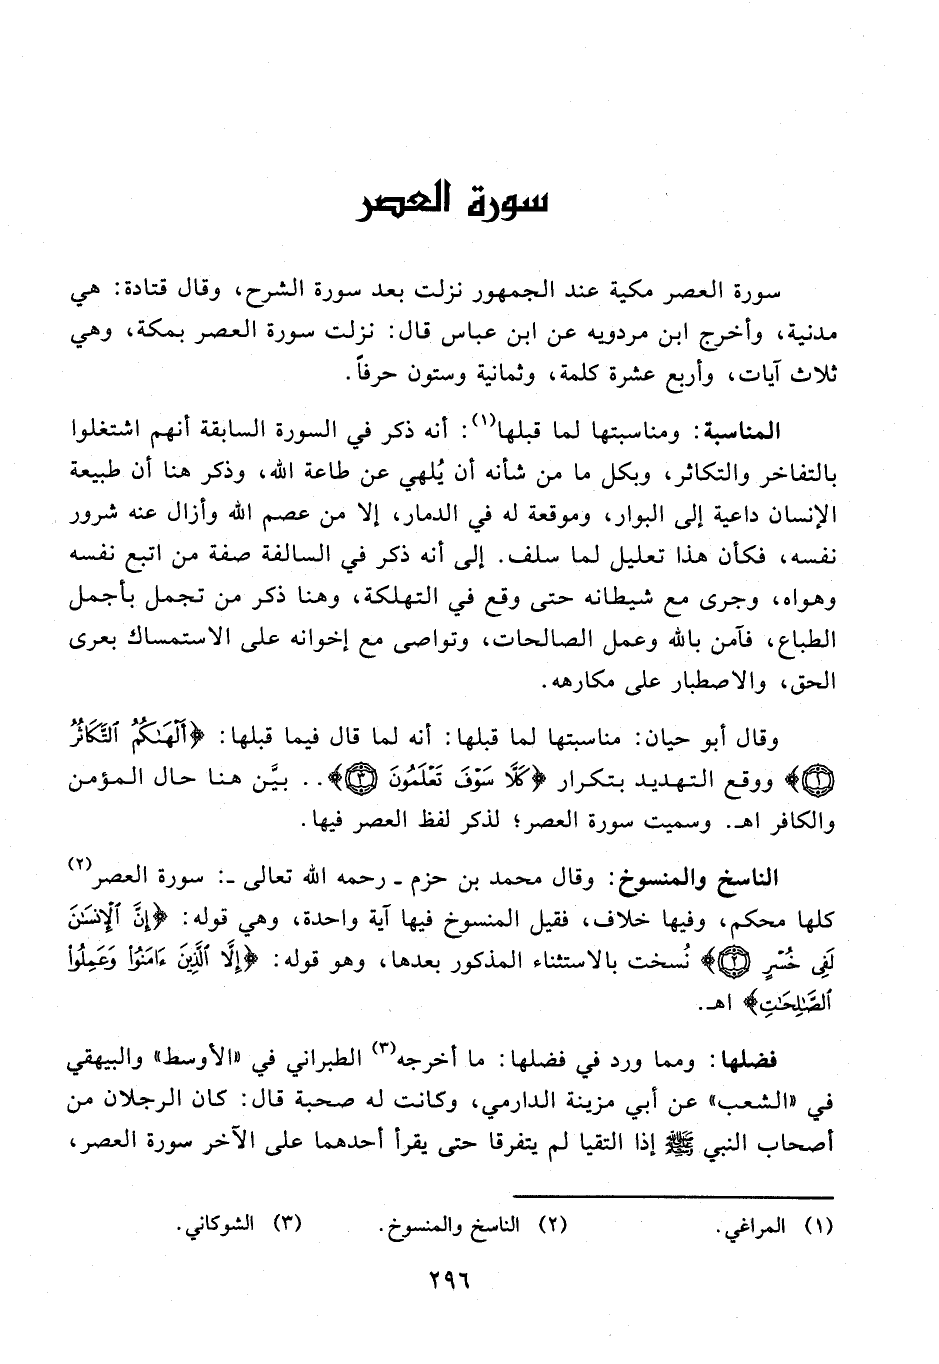 سورة العصر
سورة العصر مكية عند الجمهور نزلت بعد سورة الشرح، وقال قتادة: هي
مدنية، وأخرج ابن مردويه عن ابن عباس قال: نزلت سورة العصر بمكة، وهي
ثلاث آيات، وأربع عشرة كلمة، وثمانية وستون حرفاً.
المناسبة: ومناسبتها لما قبلها(١): أنه ذكر في السورة السابقة أنهم اشتغلوا
بالتفاخر والتكاثر، وبكل ما من شأنه أن يُلهي عن طاعة الله، وذكر هنا أن طبيعة
الإنسان داعية إلى البوار، وموقعة له في الدمار، إلا من عصم الله وأزال عنه شرور
نفسه، فكأن هذا تعليل لما سلف. إلى أنه ذكر في السالفة صفة من اتبع نفسه
وهواه، وجرى مع شيطانه حتى وقع في التهلكة، وهنا ذكر من تجمل بأجمل
الطباع، فآمن بالله وعمل الصالحات، وتواصى مع إخوانه على الاستمساك بعرى
الحق، والاصطبار على مكارهه.
وقال أبو حيان: مناسبتها لما قبلها: أنه لما قال فيما قبلها: ﴿أَلْهَىٰكُمُ ٱلتَّكَاثُرُ
١﴾ ووقع التهديد بتكرار ﴿كَلَّا سَوْفَ تَعْلَمُونَ ٣﴾.. بيَّن هنا حال المؤمن
والكافر اهـ. وسميت سورة العصر؛ لذكر لفظ العصر فيها.
الناسخ والمنسوخ: وقال محمد بن حزم ـ رحمه الله تعالى ـ: سورة العصر(٢)
كلها محكم، وفيها خلاف، فقيل المنسوخ فيها آية واحدة، وهي قوله: ﴿إِنَّ ٱلْإِنسَٰنَ
لَفِى خُسْرٍ ٢﴾ نُسخت بالاستثناء المذكور بعدها، وهو قوله: ﴿إِلَّا ٱلَّذِينَ ءَامَنُوا۟ وَعَمِلُوا۟
ٱلصَّٰلِحَٰتِ﴾ اهـ.
فضلها: ومما ورد في فضلها: ما أخرجه(٣) الطبراني في «الأوسط» والبيهقي
في «الشعب» عن أبي مزينة الدارمي، وكانت له صحبة قال: كان الرجلان من
أصحاب النبي ﷺ إذا التقيا لم يتفرقا حتى يقرأ أحدهما على الآخر سورة العصر،
(١) المراغي. (٢) الناسخ والمنسوخ. (٣) الشوكاني.
٢٩٦